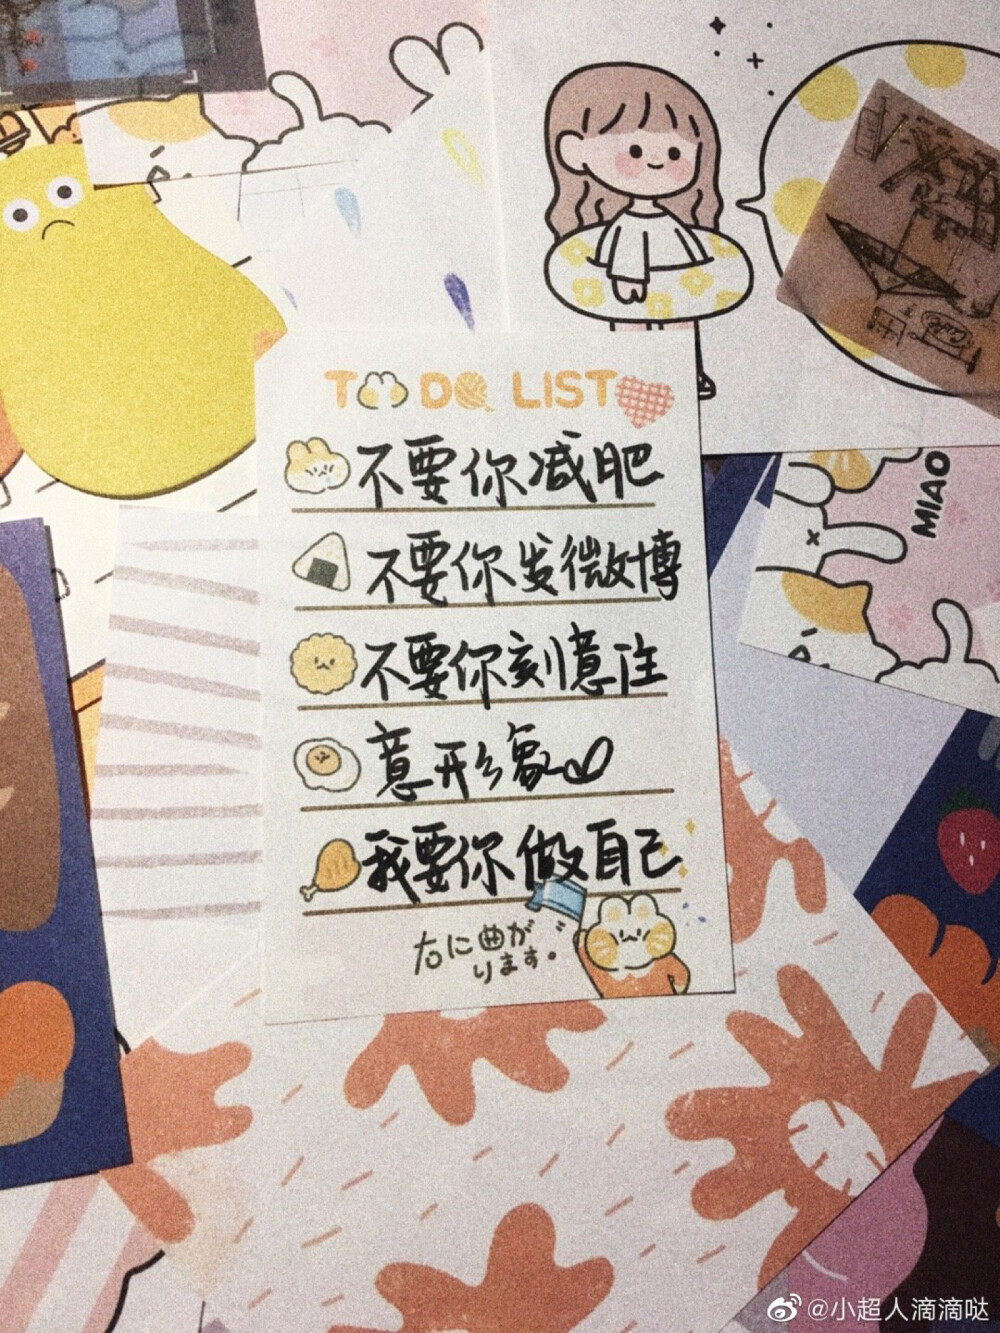 TO DO LIST
不要你减肥
不要你发微博
不要你刻意注
意形象
我要你做自己
右に曲が
ります。
MIAO
@小超人滴滴哒